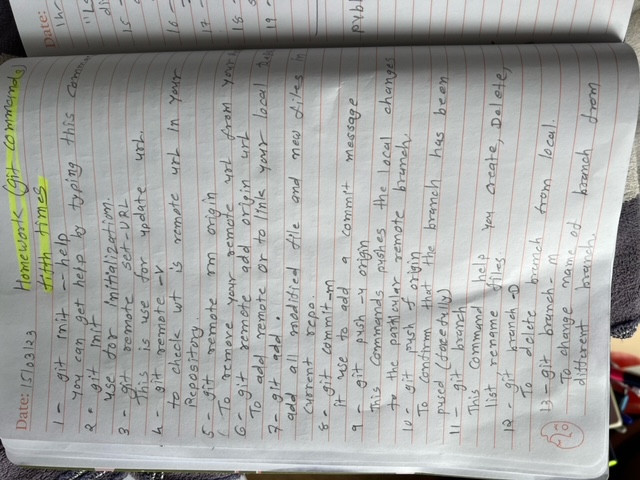 Date: 15/03/23
Homework (git commands)
fifth times
1 - git init --help
you can get help by typing this comm
2 - git init
use for initialization.
3 - git remote set-URL
This is use for update url.
4 - git remote -v
to check wt is remote url in your
Repository.
5 - git remote rm origin
To remove your remote url from your
6 - git remote add origin url
To add remote or to link your local
7 - git add .
add all modified file and new files in
current repo.
8 - git commit -m
it use to add a commit message
9 - git push -u origin
This commands pushes the local changes
to the particular remote branch.
10 - git push f origin
To confirm that the branch has been
pused (forcefully)
11 - git branch
This command help you create, Delete,
list, rename files.
12 - git branch -D
To delete branch from local.
13 - git branch - m
To change name of branch from
different branch.
Date:
15 -
16 -
17 -
18 -
19 -